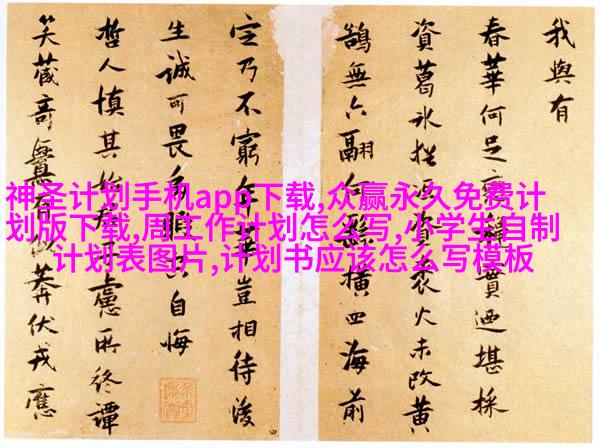 我與有
春華何足 迺堪採
資葛冰 資裘火未改黃
鵠無六翮何 橫四海前
乃不窮年華豈相待後
生誠可畏 自悔
哲人慎其始 慮所終譚
笑蔵 有 莽伏戎應
四
神圣计划手机app下载,众赢永久免费计
划版下载,周工作计划怎么写,小学生自制
计划表图片,计划书应该怎么写模板